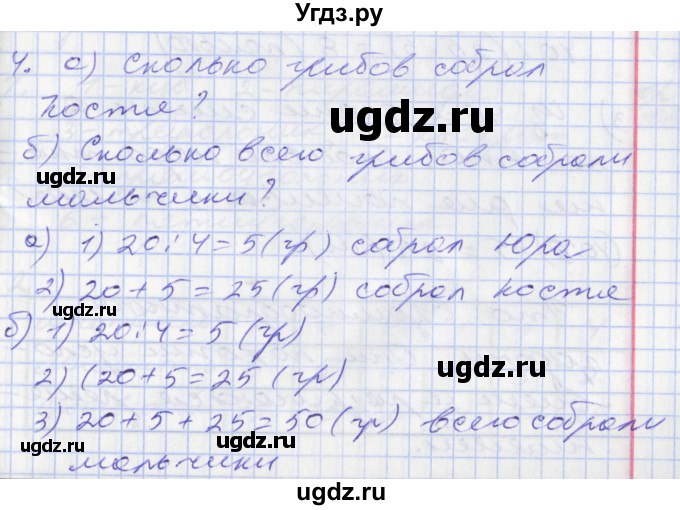 Угдз.ру
4. а) Сколько грибов собрал
Костя?
ugdz.ru
б) Сколько всего грибов собрали
ugdz.ru
мальчики?
ugdz.ru
а) 1) 20:4=5(гр) собрал Юра
2) 20+5=25(гр) собрал Костя
ugdz.ru
б) 1) 20:4=5(гр)
ugdz.ru
2) (20+5=25(гр)
3) 20+5+25=50(гр) всего собрали
ugdz.ru
мальчики
ugdz.ru
ugdz.ru